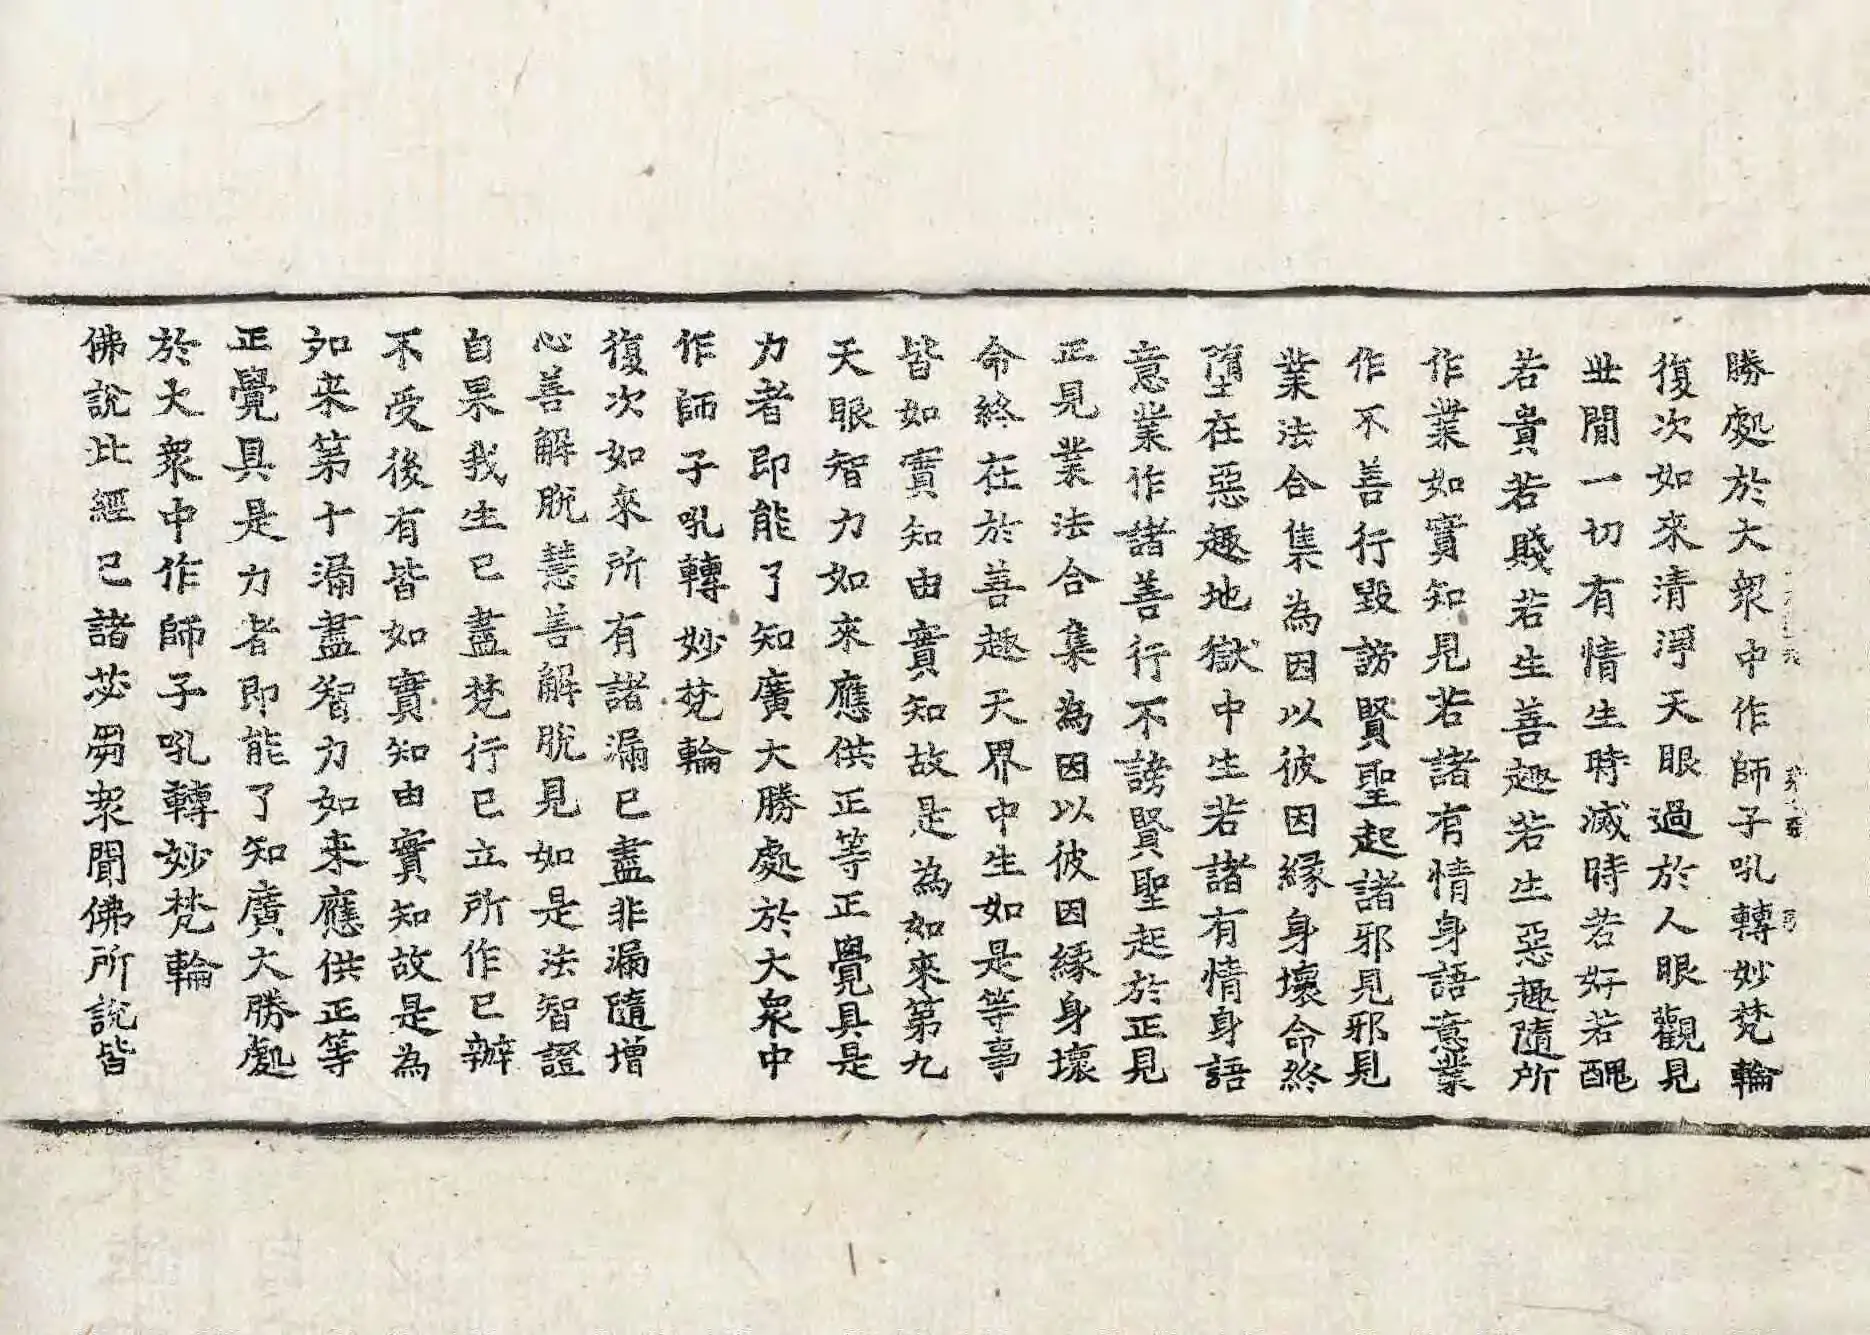 勝處於大衆中作師子吼轉妙梵輪
復次如來清淨天眼過於人眼觀見
世間一切有情生時滅時若好若醜
若貴若賤若生善趣若生惡趣隨所
作業如實知見若諸有情身語意業
作不善行毀謗賢聖起諸邪見邪見
業法合集為因以彼因緣身壞命終
墮在惡趣地獄中生若諸有情身語
意業作諸善行不謗賢聖起於正見
正見業法合集為因以彼因緣身壞
命終在於善趣天界中生如是等事
皆如實知由實知故是為如來第九
天眼智力如來應供正等正覺具是
力者即能了知廣大勝處於大衆中
作師子吼轉妙梵輪
復次如來所有諸漏已盡非漏隨增
心善解脫慧善解脫見如是法智證
自果我生已盡梵行已立所作已辦
不受後有皆如實知由實知故是為
如来第十漏盡智力如来應供正等
正覺具是力者即能了知廣大勝處
於大衆中作師子吼轉妙梵輪
佛說此經已諸苾芻衆聞佛所說皆